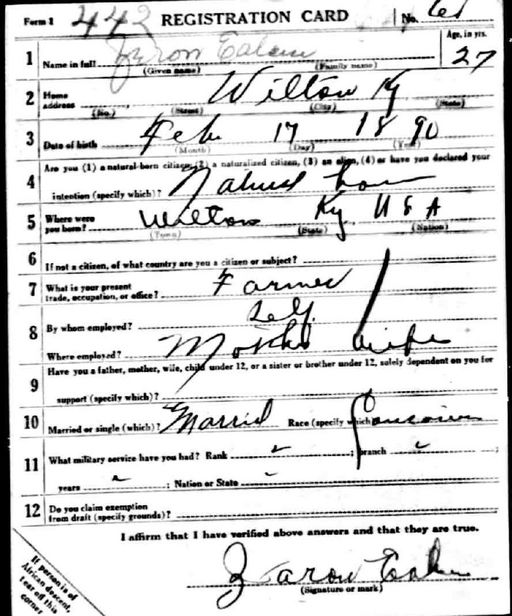 Form 1 442 REGISTRATION CARD No. 61
Age, in yrs.
1 Name in full 27
(Given name) (Family name)
2 Home address Wilton Ky
(No.) (Street) (City) (State)
3 Date of birth Feb 17 1890
(Month) (Day) (Year)
Are you (1) a natural-born citizen, (2) a naturalized citizen, (3) an alien, (4) or have you declared your
4 intention (specify which)? Natural born
5 Where were you born? Wilton Ky USA
(Town) (State) (Nation)
6 If not a citizen, of what country are you a citizen or subject?
7 What is your present trade, occupation, or office? Farmer
8 By whom employed? Self
Where employed?
Have you a father, mother, wife, child under 12, or a sister or brother under 12, solely dependent on you for
9 support (specify which)? Mother wife
10 Married or single (which)? Married Race (specify which)? Caucasian
11 What military service have you had? Rank ; branch ;
years ; Nation or State
12 Do you claim exemption from draft (specify grounds)?
I affirm that I have verified above answers and that they are true.
(Signature or mark)
If person is of
African descent,
tear off this
corner.